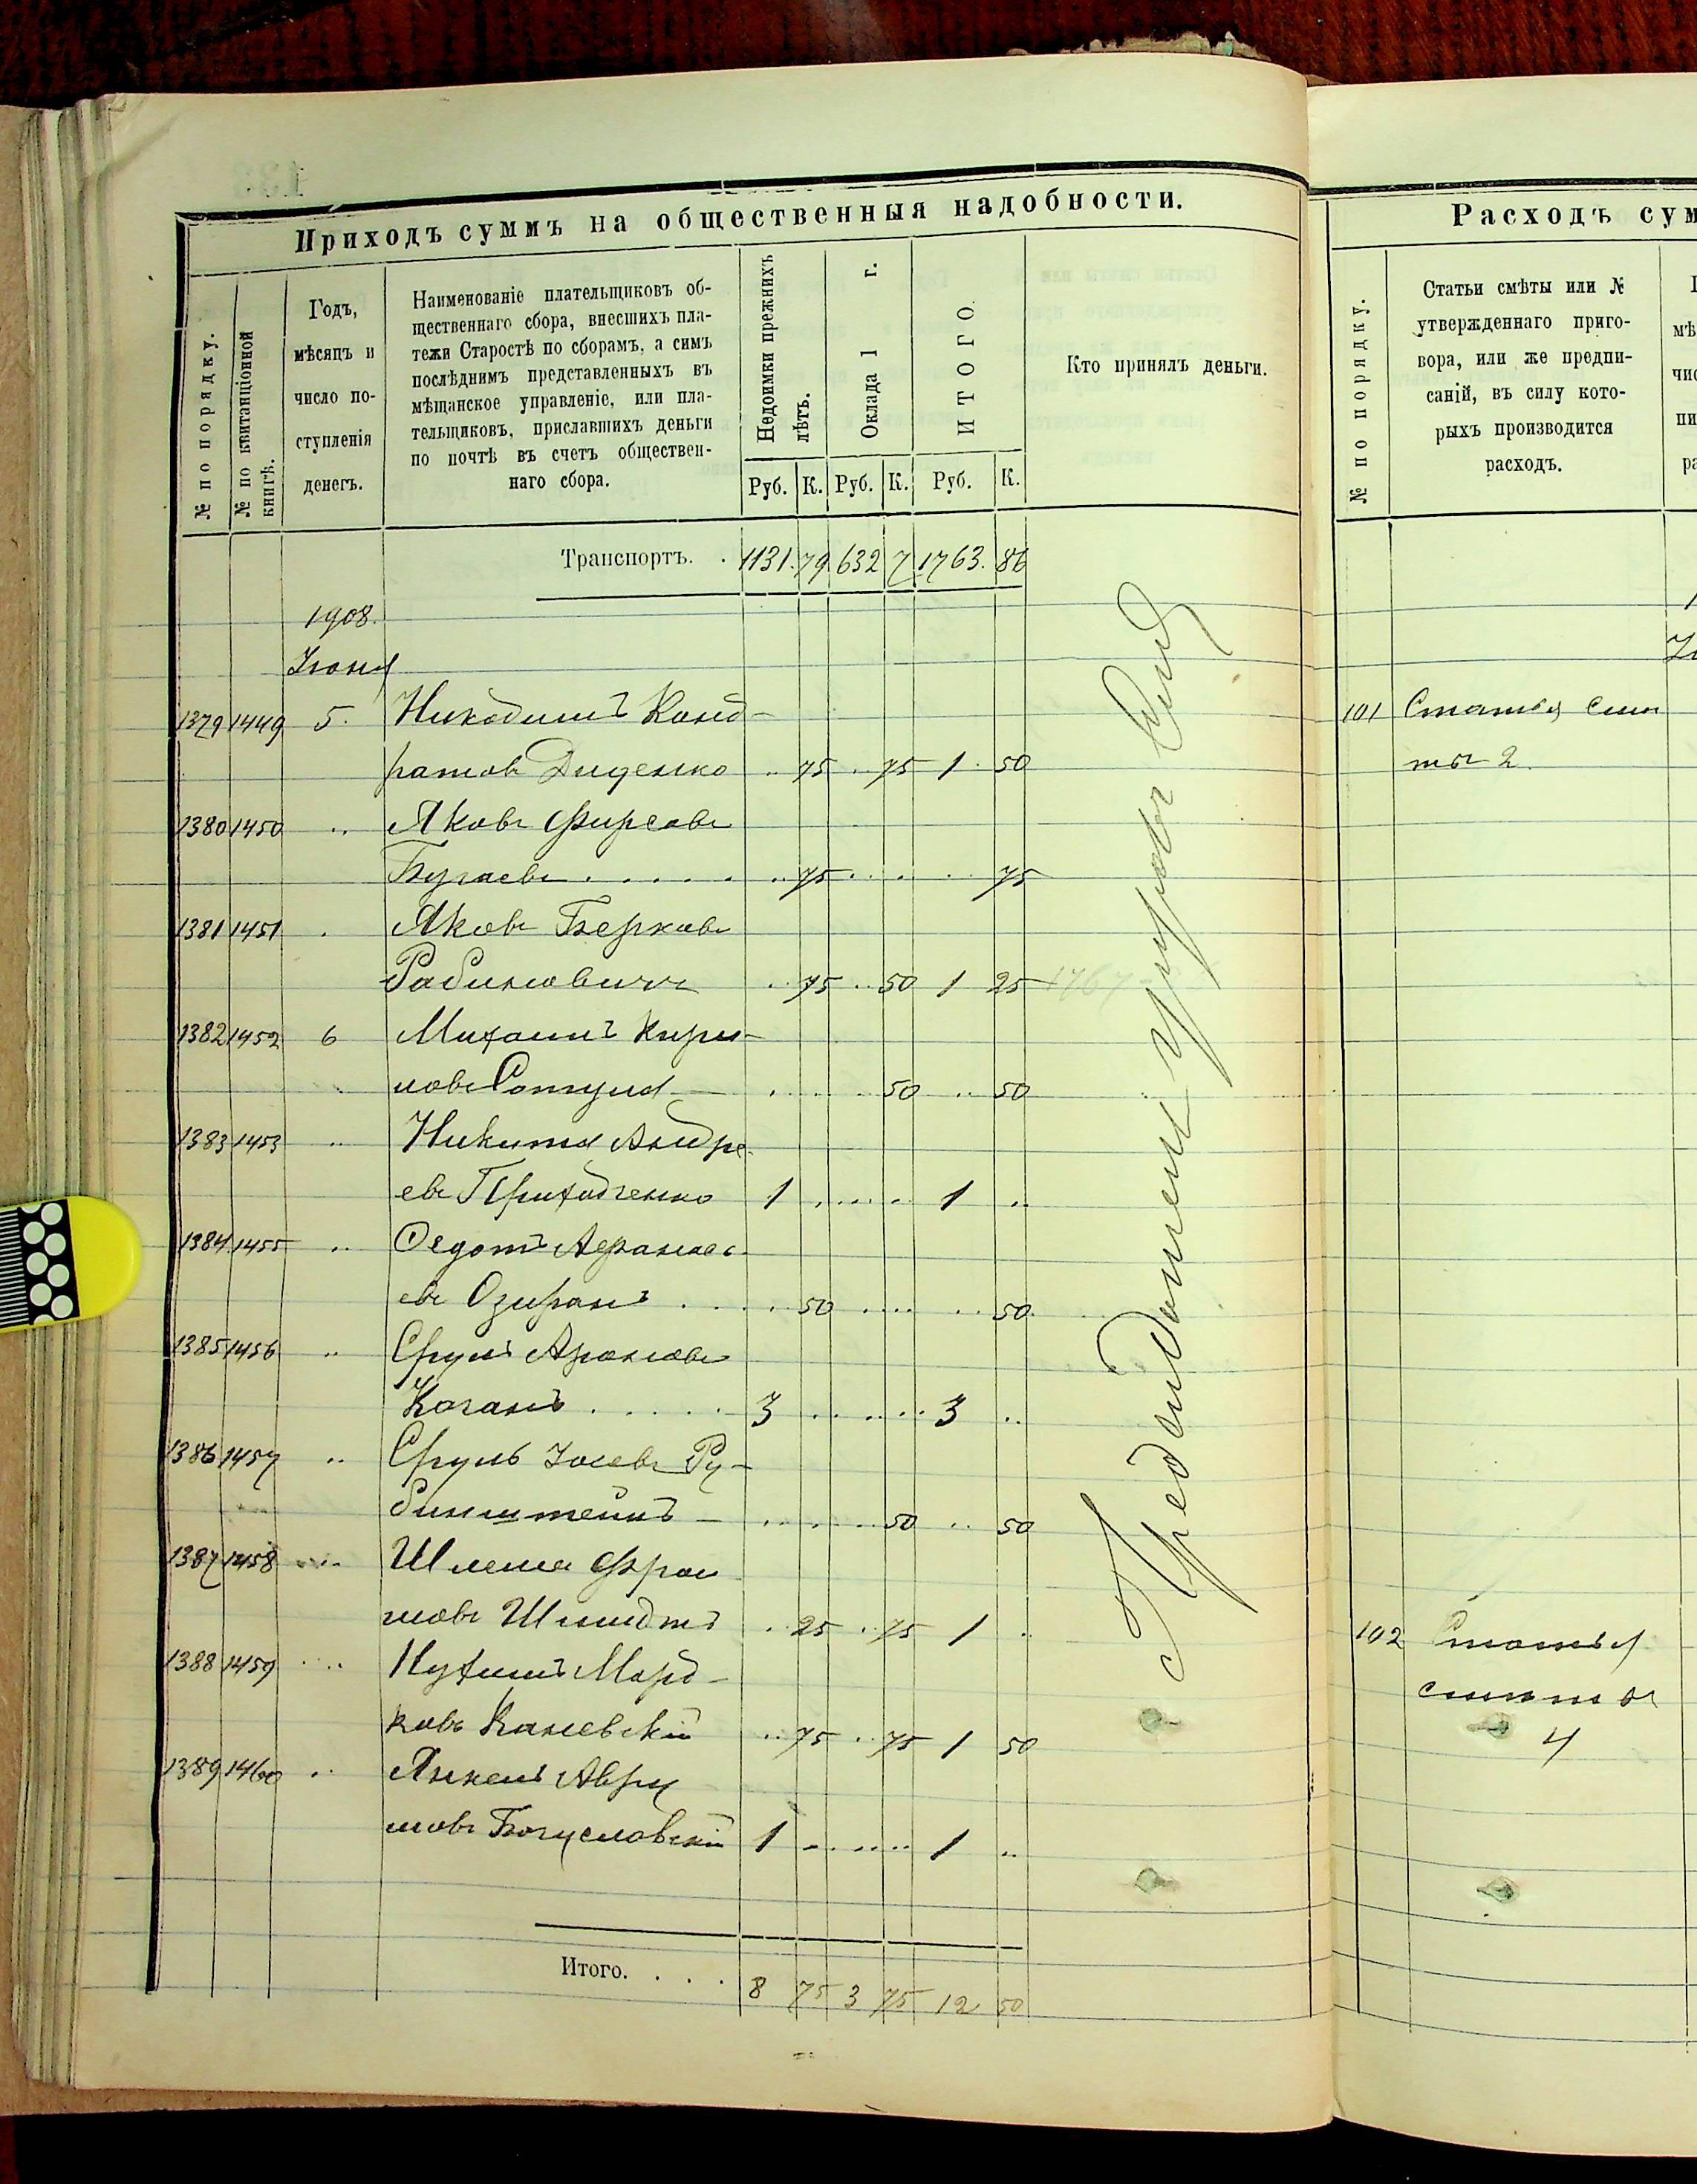 Приходъ суммъ на общественныя надобности.
№ по порядку.
№ по квитанціонной книгѣ.
Годъ,
мѣсяцъ и
число по-
ступленія
денегъ.
Наименованіе плательщиковъ об-
щественнаго сбора, внесшихъ пла-
тежи Старостѣ по сборамъ, а симъ
послѣднимъ представленныхъ въ
мѣщанское управленіе, или пла-
тельщиковъ, приславшихъ деньги
по почтѣ въ счетъ обществен-
наго сбора.
Недоимки прежнихъ лѣтъ.
Оклада 1 г.
ИТОГО
Кто принялъ деньги.
Руб. К. Руб. К. Руб. К.
Транспортъ. . 1131. 79 632 7 1763. 86
1908.
Іюня
1379 1449 5. Никодимъ Конд-
ратовъ Диденко .. 75 .. 75 1 50
1380 1450 .. Яковъ Фирсовъ
Бугаевъ . . . . . .. 75 . . . . 75
1381 1451 . Яковъ Берковъ
Рабиновичъ .. 75 .. 50 1 25 1767
1382 1452 6 Михаилъ Кири-
ловъ — . . . . 50 .. 50
1383 1453 .. Никита Андре-
евъ Приходченко 1 . . . . 1 ..
1384 1455 .. Федотъ Афанась
евъ . . 50 . . . . 50
1385 1456 .. Сруль Ароновъ
Коганъ . . . . . 3 . . . . 3 ..
1386 1457 .. Сруль Іосевъ Ру-
бинштейнъ — . . . . 50 .. 50
1387 1458 .. Шлема Фрои
мовъ Шмидтъ .. 25 .. 75 1 .
1388 1459 .. Нухимъ Морд-
ковъ Каневскій .. 75 .. 75 1 50
1389 1460 .. Янкель Авру
мовъ Богуславскій 1 . . . . 1 ..
Итого. . . . 8 75 3 75 12 50
Расходъ сум
№ по порядку.
Статьи смѣты или №
утвержденнаго приго-
вора, или же предпи-
саній, въ силу кото-
рыхъ производится
расходъ.
мѣ
чис
пи
ра
101 Статья смѣ
ты 2.
102 Статья
смѣты
4